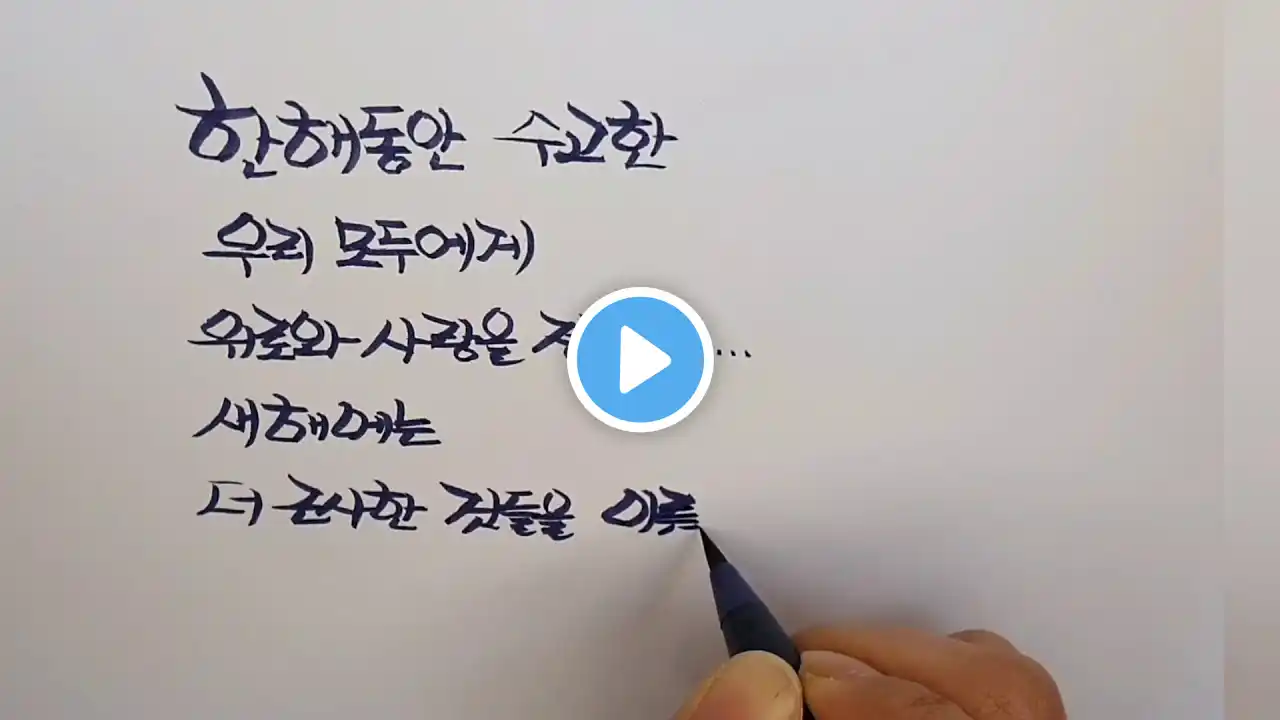 한해동안 수고한
우리 모두에게
위로와 사랑을 ...
새해에는
더 근사한 것들을 이룰